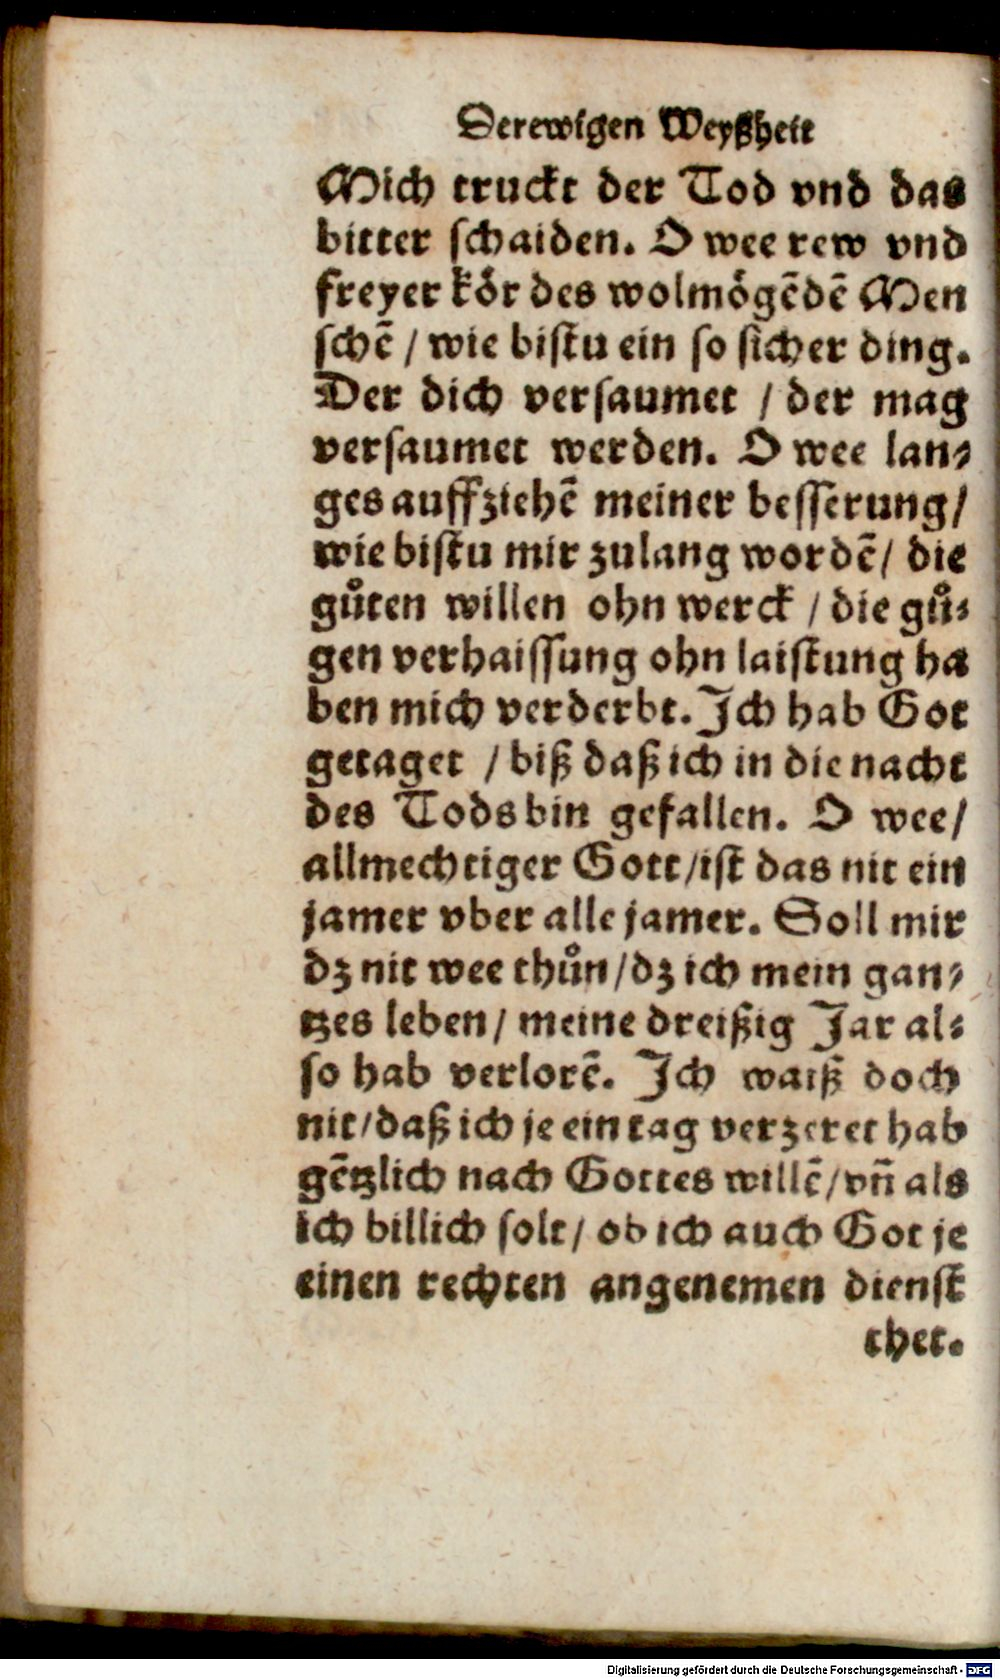 Der ewigen Weyßheit
Mich truckt der Tod vnd das
bitter schaiden. O wee rew vnd
freyer kör des wolmögẽdẽ Men
schẽ / wie bistu ein so sicher ding.
Der dich versaumet / der mag
versaumet werden. O wee lan-
ges auffziehẽ meiner besserung /
wie bistu mir zulang wordẽ / die
gůten willen ohn werck / die gů-
gen verhaissung ohn laistung ha
ben mich verderbt. Ich hab Got
getaget / biß daß ich in die nacht
des Tods bin gefallen. O wee /
allmechtiger Gott / ist das nit ein
jamer vber alle jamer. Soll mir
dz nit wee thůn / dz ich mein gan-
tzes leben / meine dreißig Jar al-
so hab verlorẽ. Ich waiß doch
nit / daß ich je ein tag verzeret hab
gẽtzlich nach Gottes willẽ / vñ als
ich billich solt / ob ich auch Got je
einen rechten angenemen dienst
thet.
Digitalisierung gefördert durch die Deutsche Forschungsgemeinschaft - DFG